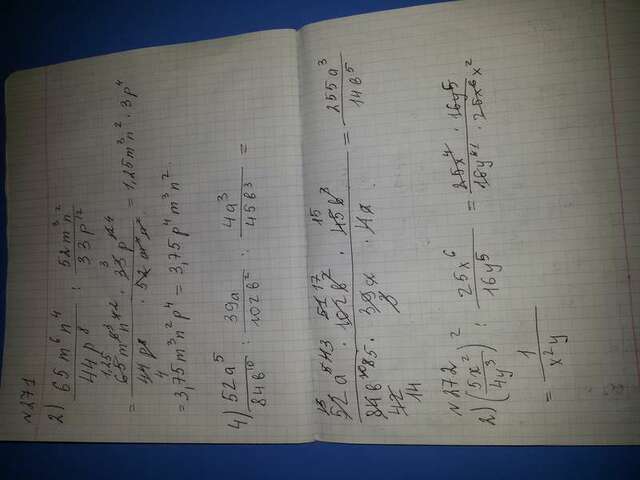 №271
2) 65m⁶n⁴ / 44p⁸ : 52m³n² / 33p¹²
= 65m⁶n⁴ · 33p¹² / 44p⁸ · 52m³n² = 1,25m³n² · 3p⁴
= 3,75m³n²p⁴ = 3,75p⁴m³n².
4) 52a⁵ / 84в¹⁰ : 39a / 102в² : 4a³ / 45в³ =
52a⁵ · 102в² · 45в³ / 84в¹⁰ · 39a · 4a = 255a³ / 14в⁵
№272
2) (5x² / 4y³)² : 25x⁶ / 16y⁵ = 25x⁴ · 16y⁵ / 16y⁶ · 25x⁶ x²
= 1 / x²y